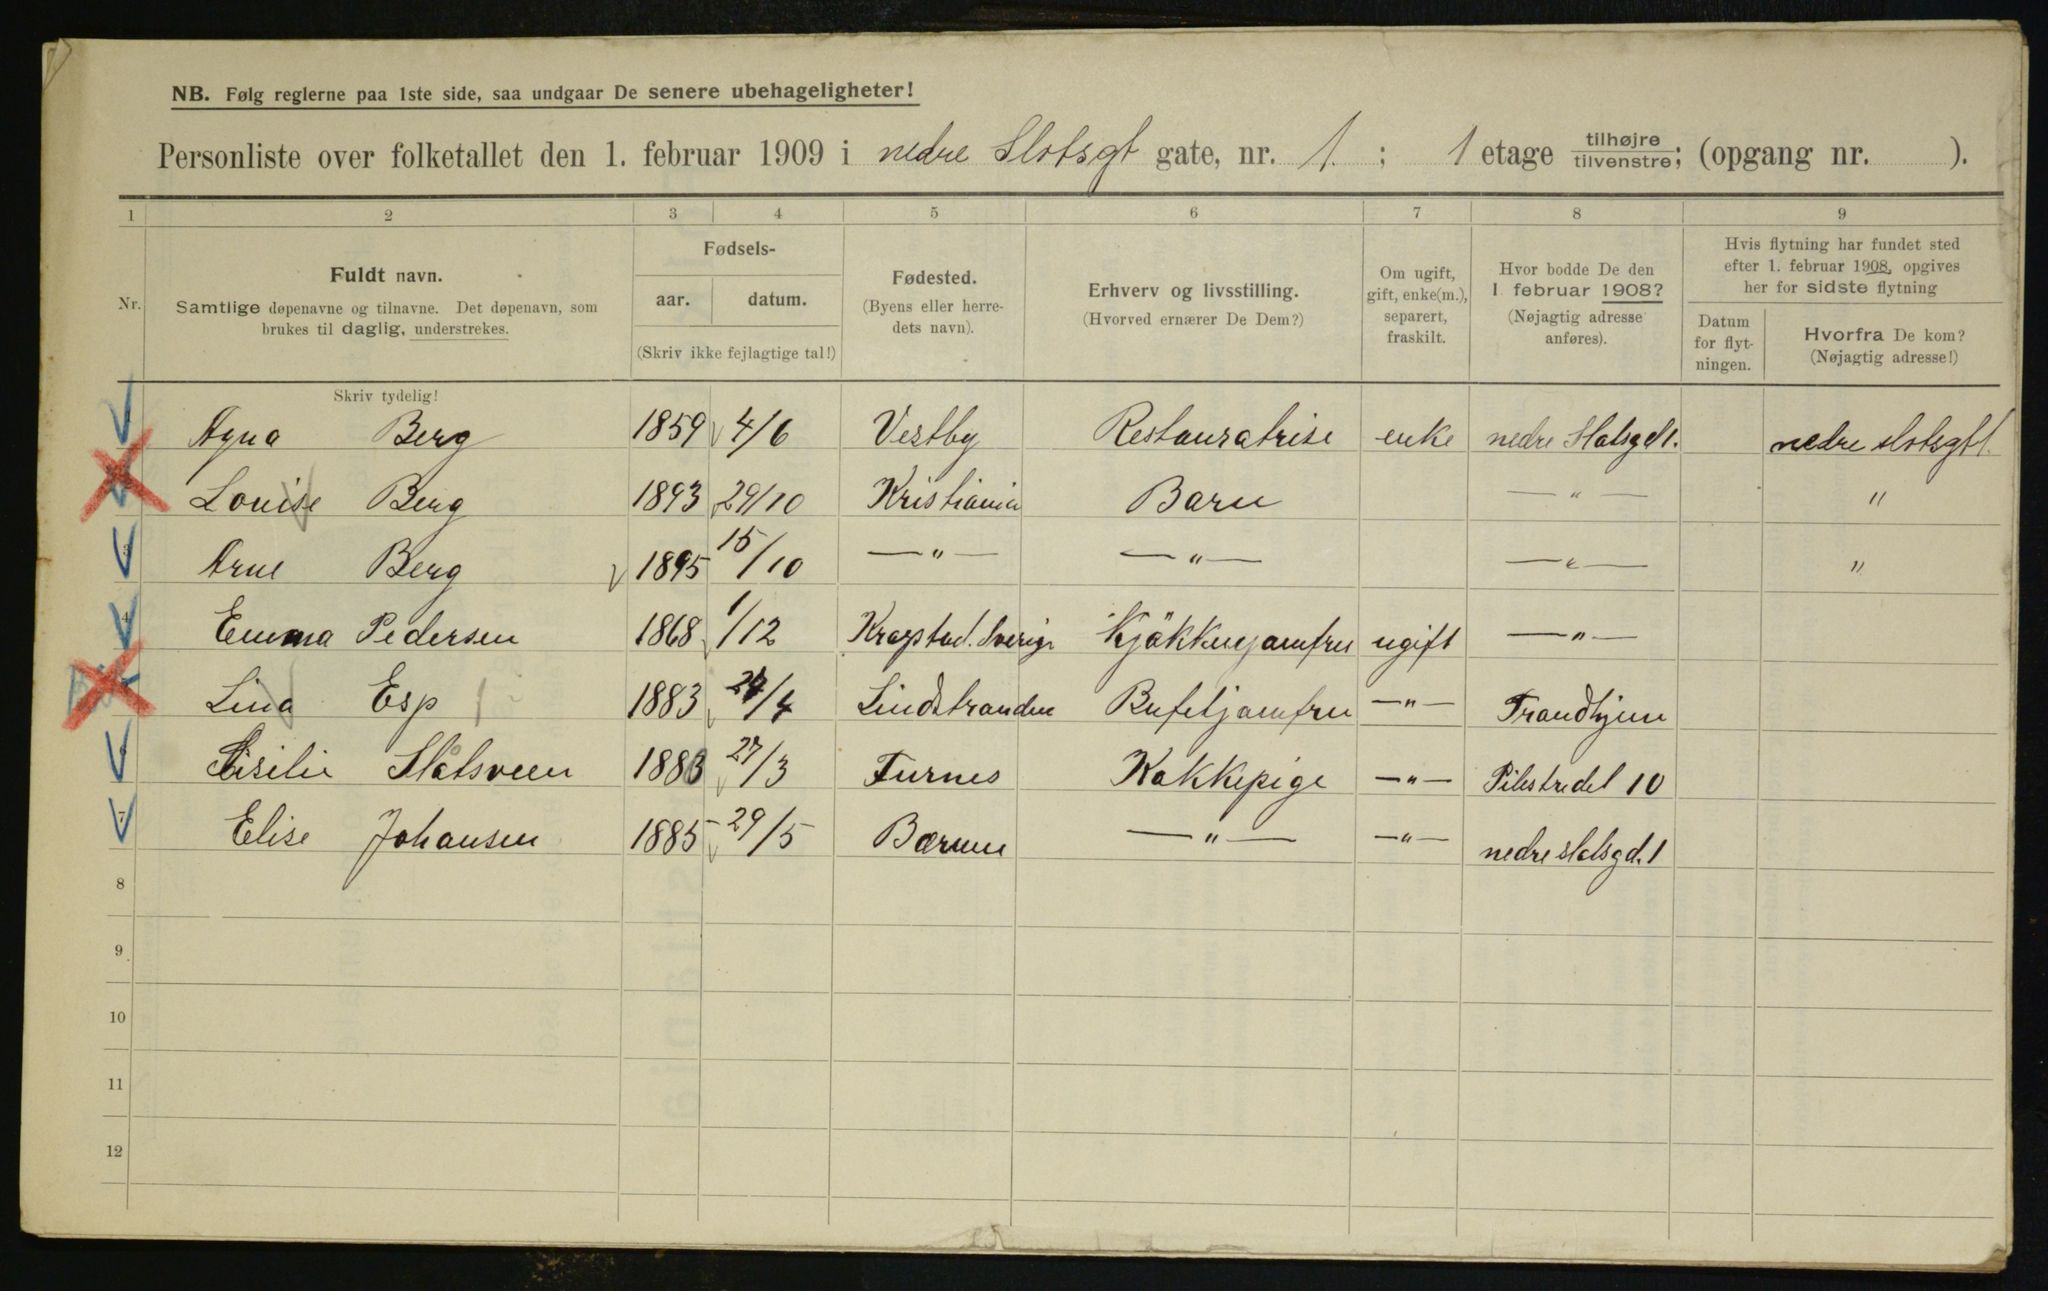 NB. Følg reglerne paa 1ste side, saa undgaar De senere ubehageligheter!
Personliste over folketallet den 1. februar 1909 i nedre Slotsgt gate, nr. 1. ; 1 etage tilhøjre tilvenstre; (opgang nr. ).
1 2 3 4 5 6 7 8 9
Nr.
Fuldt navn.
Samtlige døpenavne og tilnavne. Det døpenavn, som
brukes til daglig, understrekes.
Skriv tydelig!
Fødsels-
aar. datum.
(Skriv ikke fejlagtige tal!)
Fødested.
(Byens eller herre-
dets navn).
Erhverv og livsstilling.
(Hvorved ernærer De Dem?)
Om ugift,
gift, enke(m.),
separert,
fraskilt.
Hvor bodde De den
1. februar 1908?
(Nøjagtig adresse
anføres).
Hvis flytning har fundet sted
efter 1. februar 1908, opgives
her for sidste flytning
Datum
for flyt-
ningen.
Hvorfra De kom?
(Nøjagtig adresse!)
Berg 1859 4/6 Vestby Restauratrise enke nedre Slotsgd 1. nedre slotsgt 1.
Louise Berg 1893 29/10 Kristiania Barn — " — "
3 Arne Berg 1895 15/10 — " — — " — — " — "
4 Emma Pedersen 1868 1/12 Sverige Kjökkenjomfru ugift — " —
Lina Esp 1883 /4 Lindstranden Bufetjomfru — " — Trondhjem
6 Sisilie Slåtsveen 1883 27/3 Furnes Kokkepige — " — Pilestredet 10
7 Elise Johansen 1885 29/5 Bærum — " — — " — nedre slotsgd. 1
8
9
10
11
12